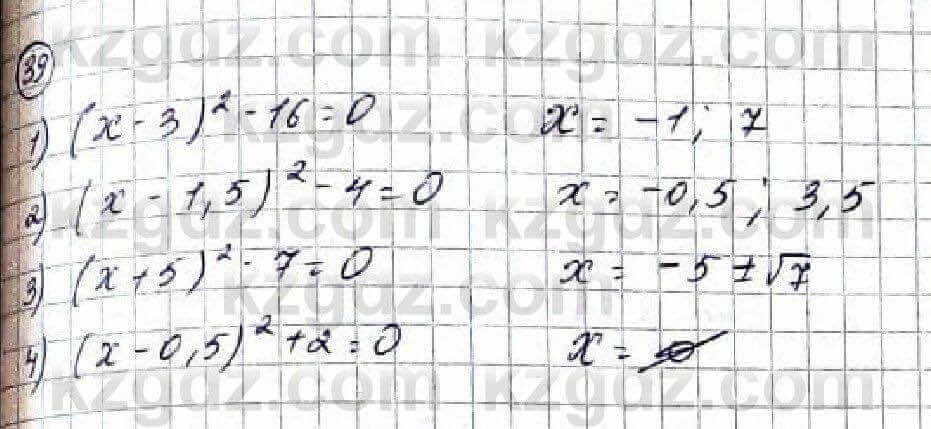 39
1) (x - 3)² - 16 = 0    x = -1; 7
2) (x - 1,5)² - 4 = 0    x = -0,5; 3,5
3) (x + 5)² - 7 = 0    x = -5 ± √7
4) (x - 0,5)² + 2 = 0    x = ∅
kzgdz.com kzgdz.com
kzgdz.com kzgdz.com
kzgdz.com kzgdz.com
kzgdz.com kzgdz.com
kzgdz.com kzgdz.com